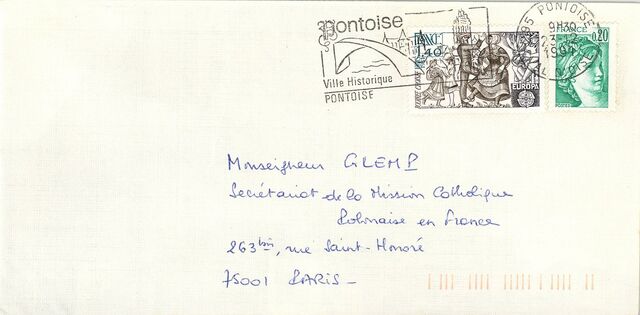 Pontoise
Ville Historique
PONTOISE
1,40
EUROPA
95 PONTOISE
9H30
VAL D'OISE
FRANCE
0,20
Monseigneur GLEMP
Secrétariat de la Mission Catholique
Polonaise en France
263 bis, rue Saint-Honoré
75001 PARIS-